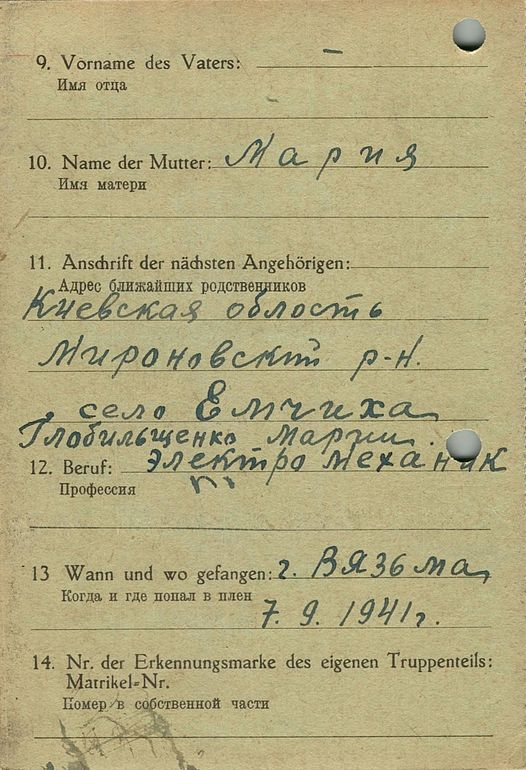 9. Vorname des Vaters: —
Имя отца
10. Name der Mutter: Мария
Имя матери
11. Anschrift der nächsten Angehörigen:
Адрес ближайших родственников
Киевская область
Мироновский р-н.
село Емчиха
Глобильщенко Марии.
12. Beruf: электро механик
Профессия
13 Wann und wo gefangen: г. Вязьма
Когда и где попал в плен
7. 9. 1941г.
14. Nr. der Erkennungsmarke des eigenen Truppenteils:
Matrikel-Nr.
Номер в собственной части